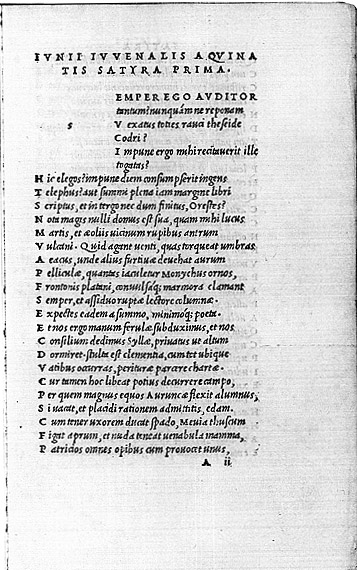 IVNII IVVENALIS AQVINA
TIS SATYRA PRIMA.
EMPER EGO AVDITOR
tantum? nunquám ne reponam
V exatus toties rauci theseide
Codri?
I mpune ergo mihi recitauerit ille
togatas?
s
H ic elegos? impune diem consumpserit ingens
T elephus? aut summi plena iam margine libri
S criptus, et in tergo nec dum finitus, Orestes?
N ota magis nulli domus est sua, quam mihi lucus
M artis, et æoliis uicinum rupibus antrum
V ulcani. Quid agant uenti, quas torqueat umbras
A eacus, unde alius furtiuæ deuehat aurum
P elliculæ, quantas iaculetur Monychus ornos,
F rontonis platani, conuulsaq; marmora clamant
S emper, et assiduo ruptæ lectore columnæ.
E xpectes eadem a summo, minimoq; poeta.
E t nos ergo manum ferulæ subduximus, et nos
C onsilium dedimus Syllæ, priuatus ut altum
D ormiret. stulta est clementia, cum tot ubique
V atibus occurras, perituræ parcere chartæ.
C ur tamen hoc libeat potius decurrere campo,
P er quem magnus equos Auruncæ flexit alumnus,
S i uacat, et placidi rationem admittitis, edam.
C um tener uxorem ducat spado, Meuia thuscum
F igat aprum, et nuda teneat uenabula mamma,
P atricios omnes opibus cum prouocet unus,
A ii